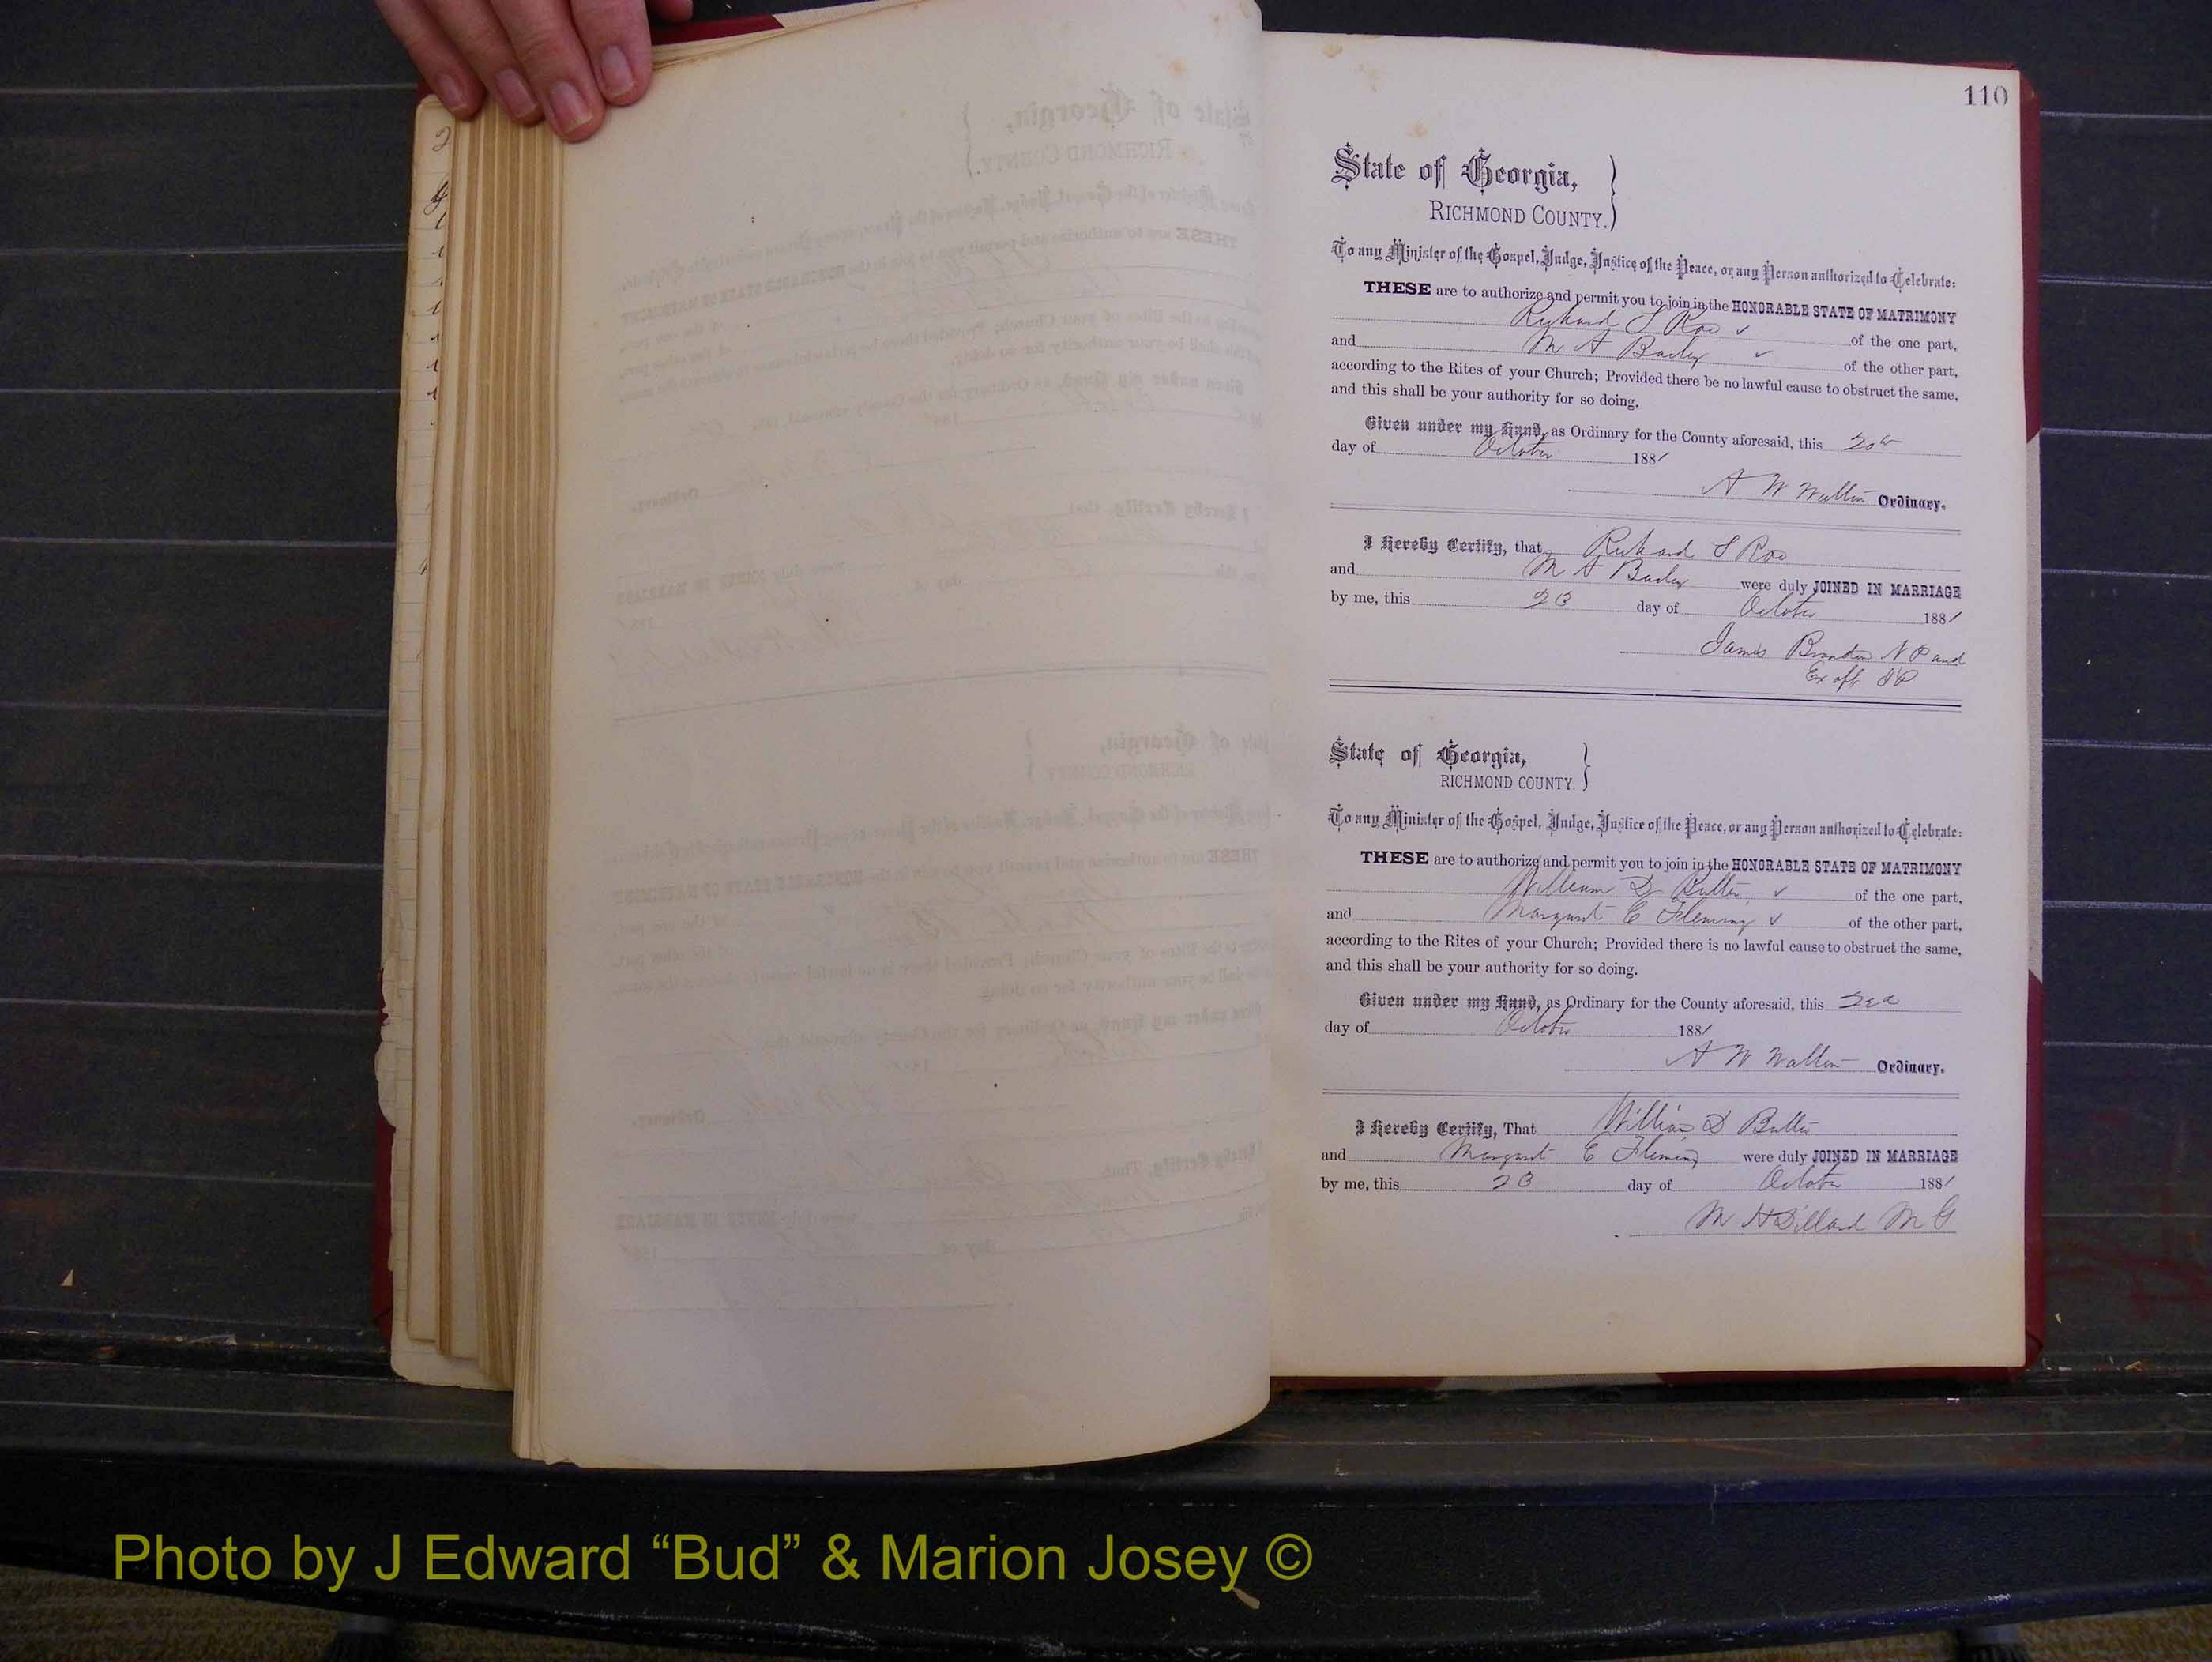 110
State of Georgia,
RICHMOND COUNTY.
To any Minister of the Gospel, Judge, Justice of the Peace, or any Person authorized to Celebrate:
THESE are to authorize and permit you to join in the HONORABLE STATE OF MATRIMONY
Richard S Roe of the one part,
and M A Bailey of the other part,
according to the Rites of your Church; Provided there be no lawful cause to obstruct the same,
and this shall be your authority for so doing.
Given under my Hand, as Ordinary for the County aforesaid, this 20th
day of October 1881
A W Walton Ordinary.
I Hereby Certify, that Richard S Roe
and M A Bailey were duly JOINED IN MARRIAGE
by me, this 23 day of October 1881
James Brandon N P and
Ex off J P
State of Georgia,
RICHMOND COUNTY.
To any Minister of the Gospel, Judge, Justice of the Peace, or any Person authorized to Celebrate:
THESE are to authorize and permit you to join in the HONORABLE STATE OF MATRIMONY
William D Butler of the one part,
and Margaret E Fleming of the other part,
according to the Rites of your Church; Provided there is no lawful cause to obstruct the same,
and this shall be your authority for so doing.
Given under my Hand, as Ordinary for the County aforesaid, this 22d
day of October 1881
A W Walton Ordinary.
I Hereby Certify, That William D Butler
and Margaret E Fleming were duly JOINED IN MARRIAGE
by me, this 23 day of October 1881
M H Dillard M G
Photo by J Edward “Bud” & Marion Josey ©